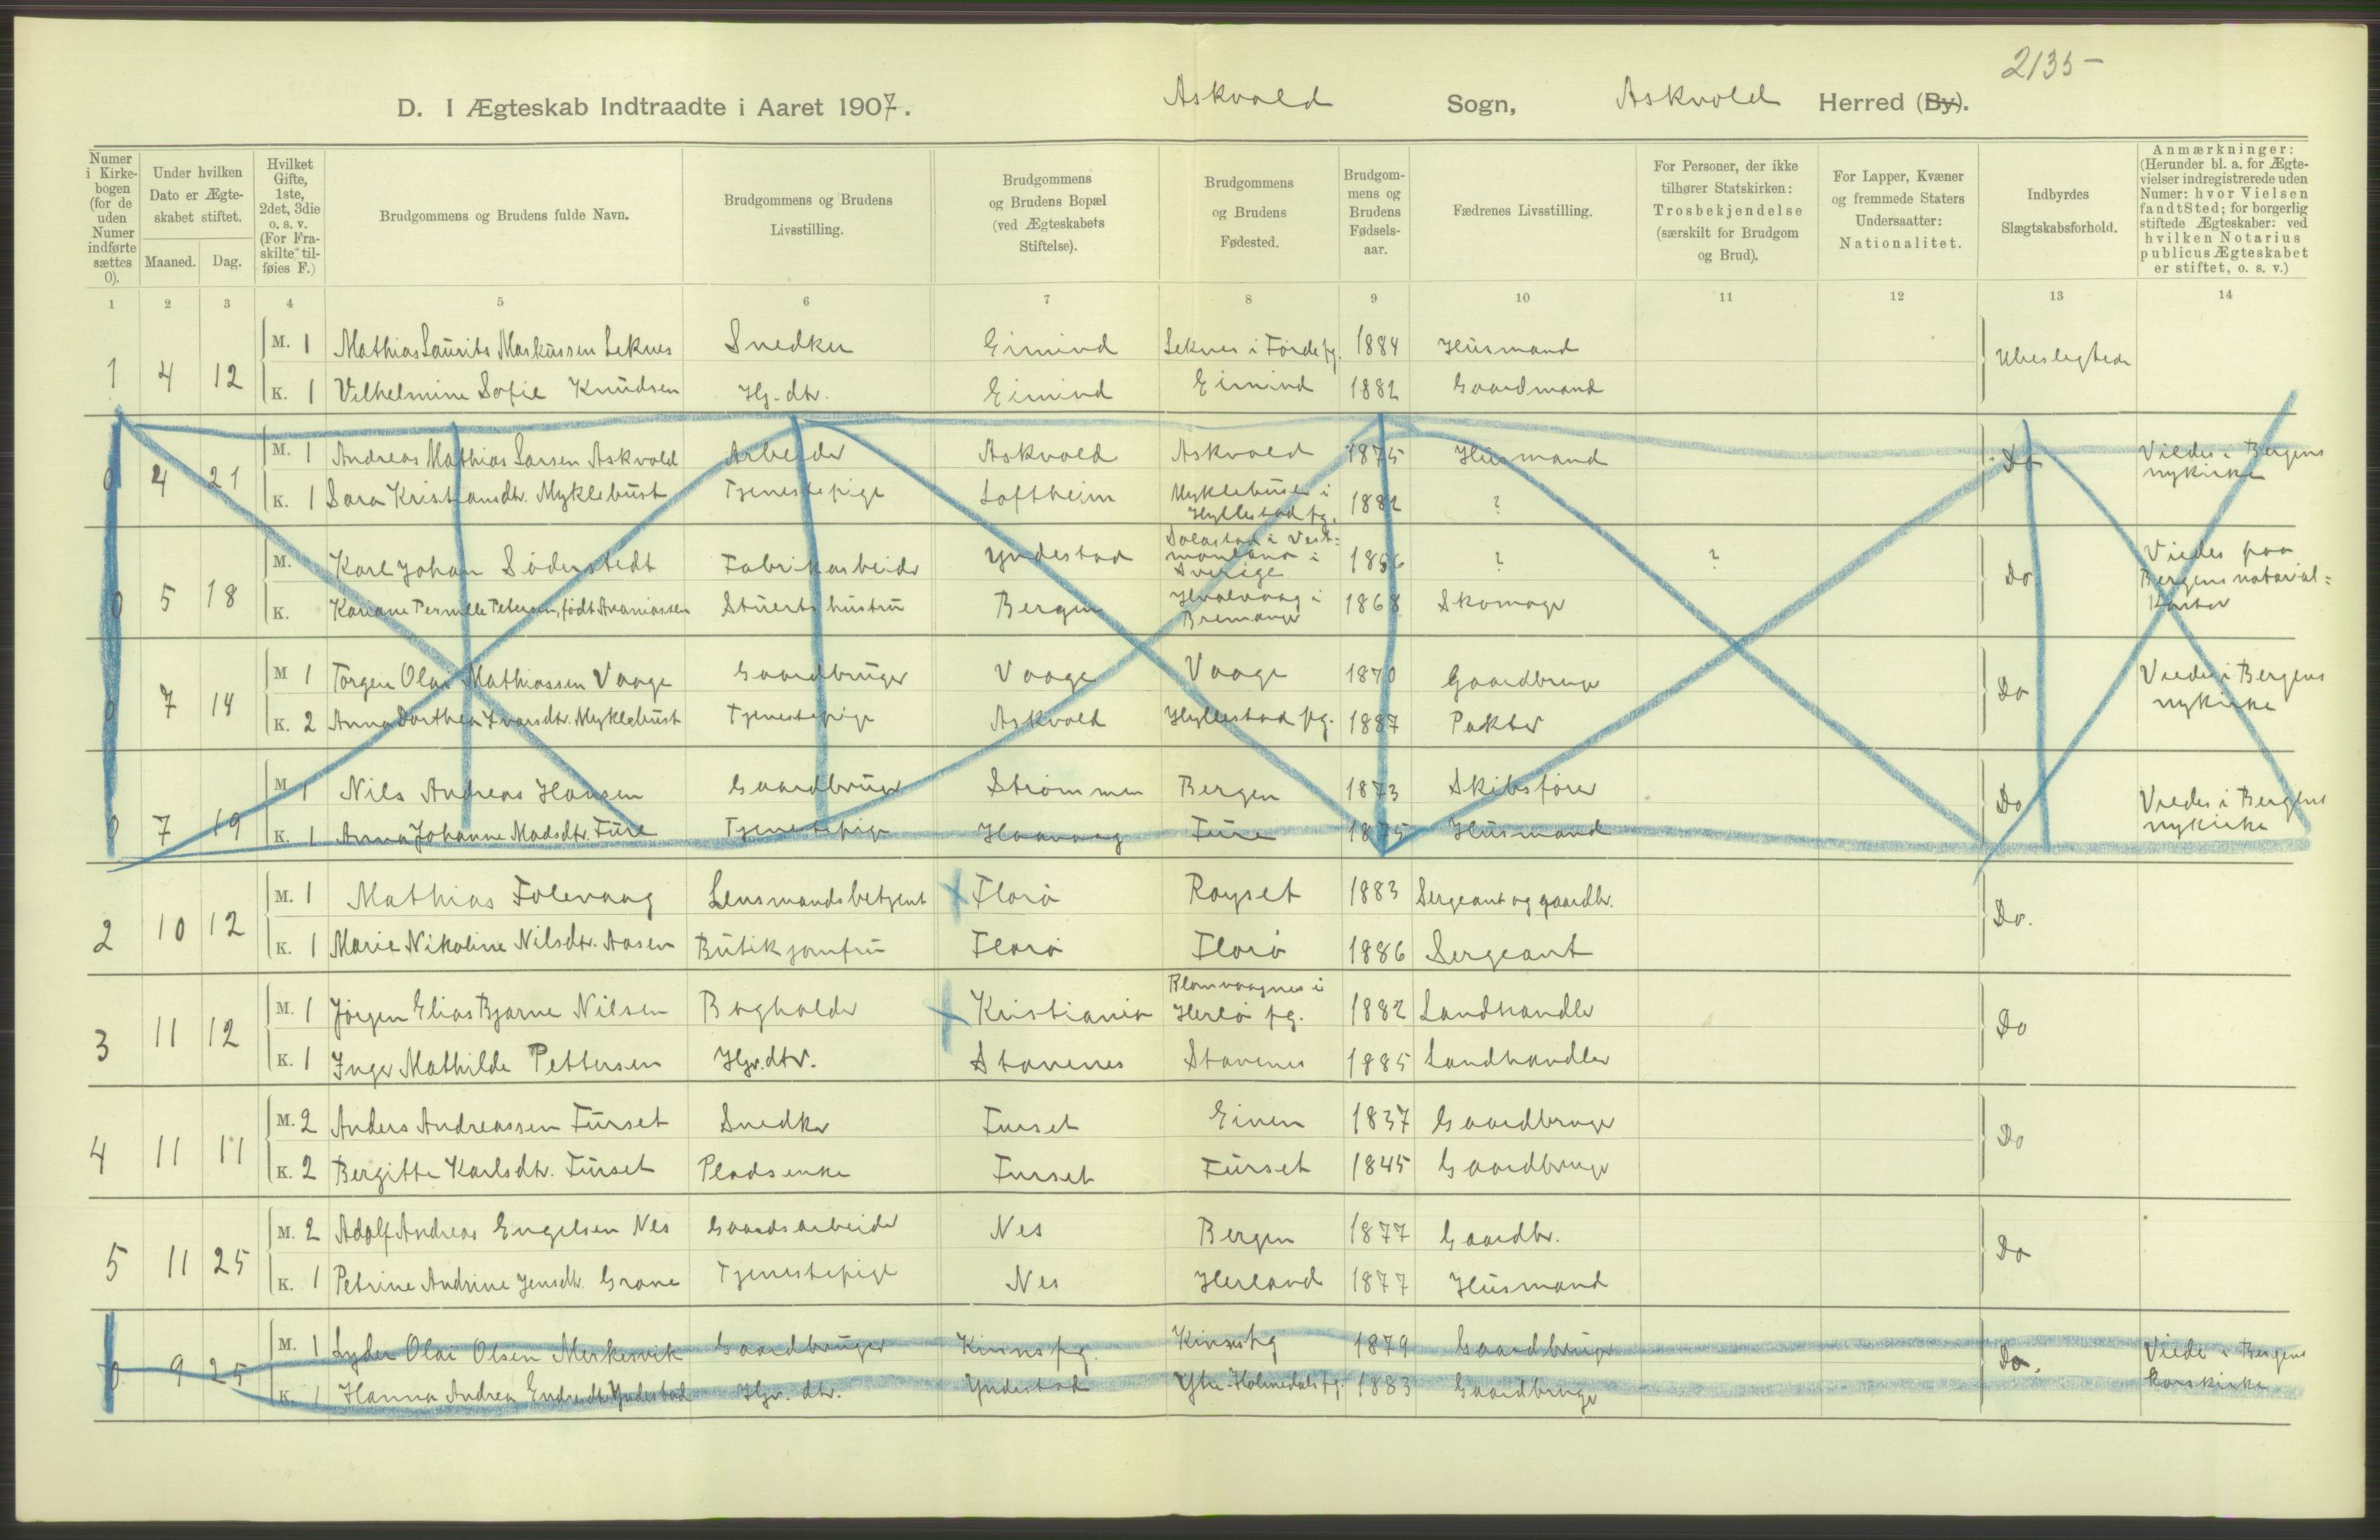 2135-
D. I Ægteskab Indtraadte i Aaret 1907. Askvold Sogn, Askvold Herred (By).
Numer i Kirke-bogen (for de uden Numer indførte sættes 0).
Under hvilken Dato er Ægte-skabet stiftet.
Maaned. Dag.
Hvilket Gifte, 1ste, 2det, 3die o. s. v. (For Fra-skilte tilføies F.)
Brudgommens og Brudens fulde Navn.
Brudgommens og Brudens Livsstilling.
Brudgommens og Brudens Bopæl (ved Ægteskabets Stiftelse).
Brudgommens og Brudens Fødested.
Brudgom-mens og Brudens Fødsels-aar.
Fædrenes Livsstilling.
For Personer, der ikke tilhører Statskirken: Trosbekjendelse (særskilt for Brudgom og Brud).
For Lapper, Kvæner og fremmede Staters Undersaatter: Nationalitet.
Indbyrdes Slægtskabsforhold.
Anmærkninger: (Herunder bl. a. for Ægte-vielser indregistrerede uden Numer: hvor Vielsen fandt Sted; for borgerlig stiftede Ægteskaber: ved hvilken Notarius publicus Ægteskabet er stiftet, o. s. v.)
1 2 3 4 5 6 7 8 9 10 11 12 13 14
1 4 12 M. 1 Mathias Laurits Markussen Leknes Snedker Eimind Leknes i Førde pg. 1884 Husmand Ubeslegtede
K. 1 Vilhelmine Sofie Knudsen Hg. dtr. Eimind Eimind 1882 Gaardmand
0 4 21 M. 1 Andreas Mathias Larsen Askvold Arbeider Askvold Askvold 1875 Husmand Do Viedes i Bergens nykirke
K. 1 Sara Kristiansdtr. Myklebust Tjenestepige Loftheim Myklebust i Hyllestad pg. 1882 ?
0 5 18 M. Karl Johan Söderstedt Fabrikarbeider Yndestad Sverige 1856 ? ? Do Viedes paa Bergens notarial=kontor
K. Kariane Pernille Petersen, født Ananiassen Stuerts hustru Bergen Bremanger 1868 Skomager
0 7 14 M 1 Torger Olai Mathiassen Vaage Gaardbruger Vaage Vaage 1870 Gaardbruger Do Viedes i Bergens nykirke
K. 2 Anna Dorthea Ivarsdtr. Myklebust Tjenestepige Askvold Hyllestad pg. 1887 Pakter
0 7 19 M 1 Nils Andreas Hansen Gaardbruger Strømmen Bergen 1873 Skibsfører Do Viedes i Bergens nykirke
K. 1 Anna Johanne Madsdtr. Fure Tjenestepige Haavaag Fure 1875 Husmand
2 10 12 M. 1 Mathias Folevaag Lensmandsbetjent Florø Røyset 1883 Sergeant og gaardbr. Do.
K. 1 Marie Nikoline Nilsdtr. Aasen Butikjomfru Florø Florø 1886 Sergeant
3 11 12 M. 1 Jørgen Elias Bjarne Nilsen Bogholder Kristiania Blomvaagnes i Herlø pg. 1882 Landhandler Do
K. 1 Inger Mathilde Pettersen Hgr. dtr. Stavenes Stavenes 1885 Landhandler
4 11 11 M. 2 Anders Andreassen Furset Snedker Furset Einen 1837 Gaardbruger Do
K. 2 Bergitte Karlsdtr. Furset Pladsenke Furset Furset 1845 Gaardbruger
5 11 25 M. 2 Adolf Andreas Engelsen Nes Gaardsarbeider Nes Bergen 1877 Gaardbr. Do
K. 1 Petrine Andrine Jensdtr. Grane Tjenestepige Nes Herland 1877 Husmand
0 9 25 M. 1 Lyder Olai Olsen Merkesvik Gaardbruger Kinns pg. Kinns pg 1879 Gaardbruger Do. Viede i Bergens korskirke
K. 1 Hanna Andrea Endresdtr. Yndestad Hgr. dtr. Yndestad Ytre-Holmedals pg. 1883 Gaardbruger